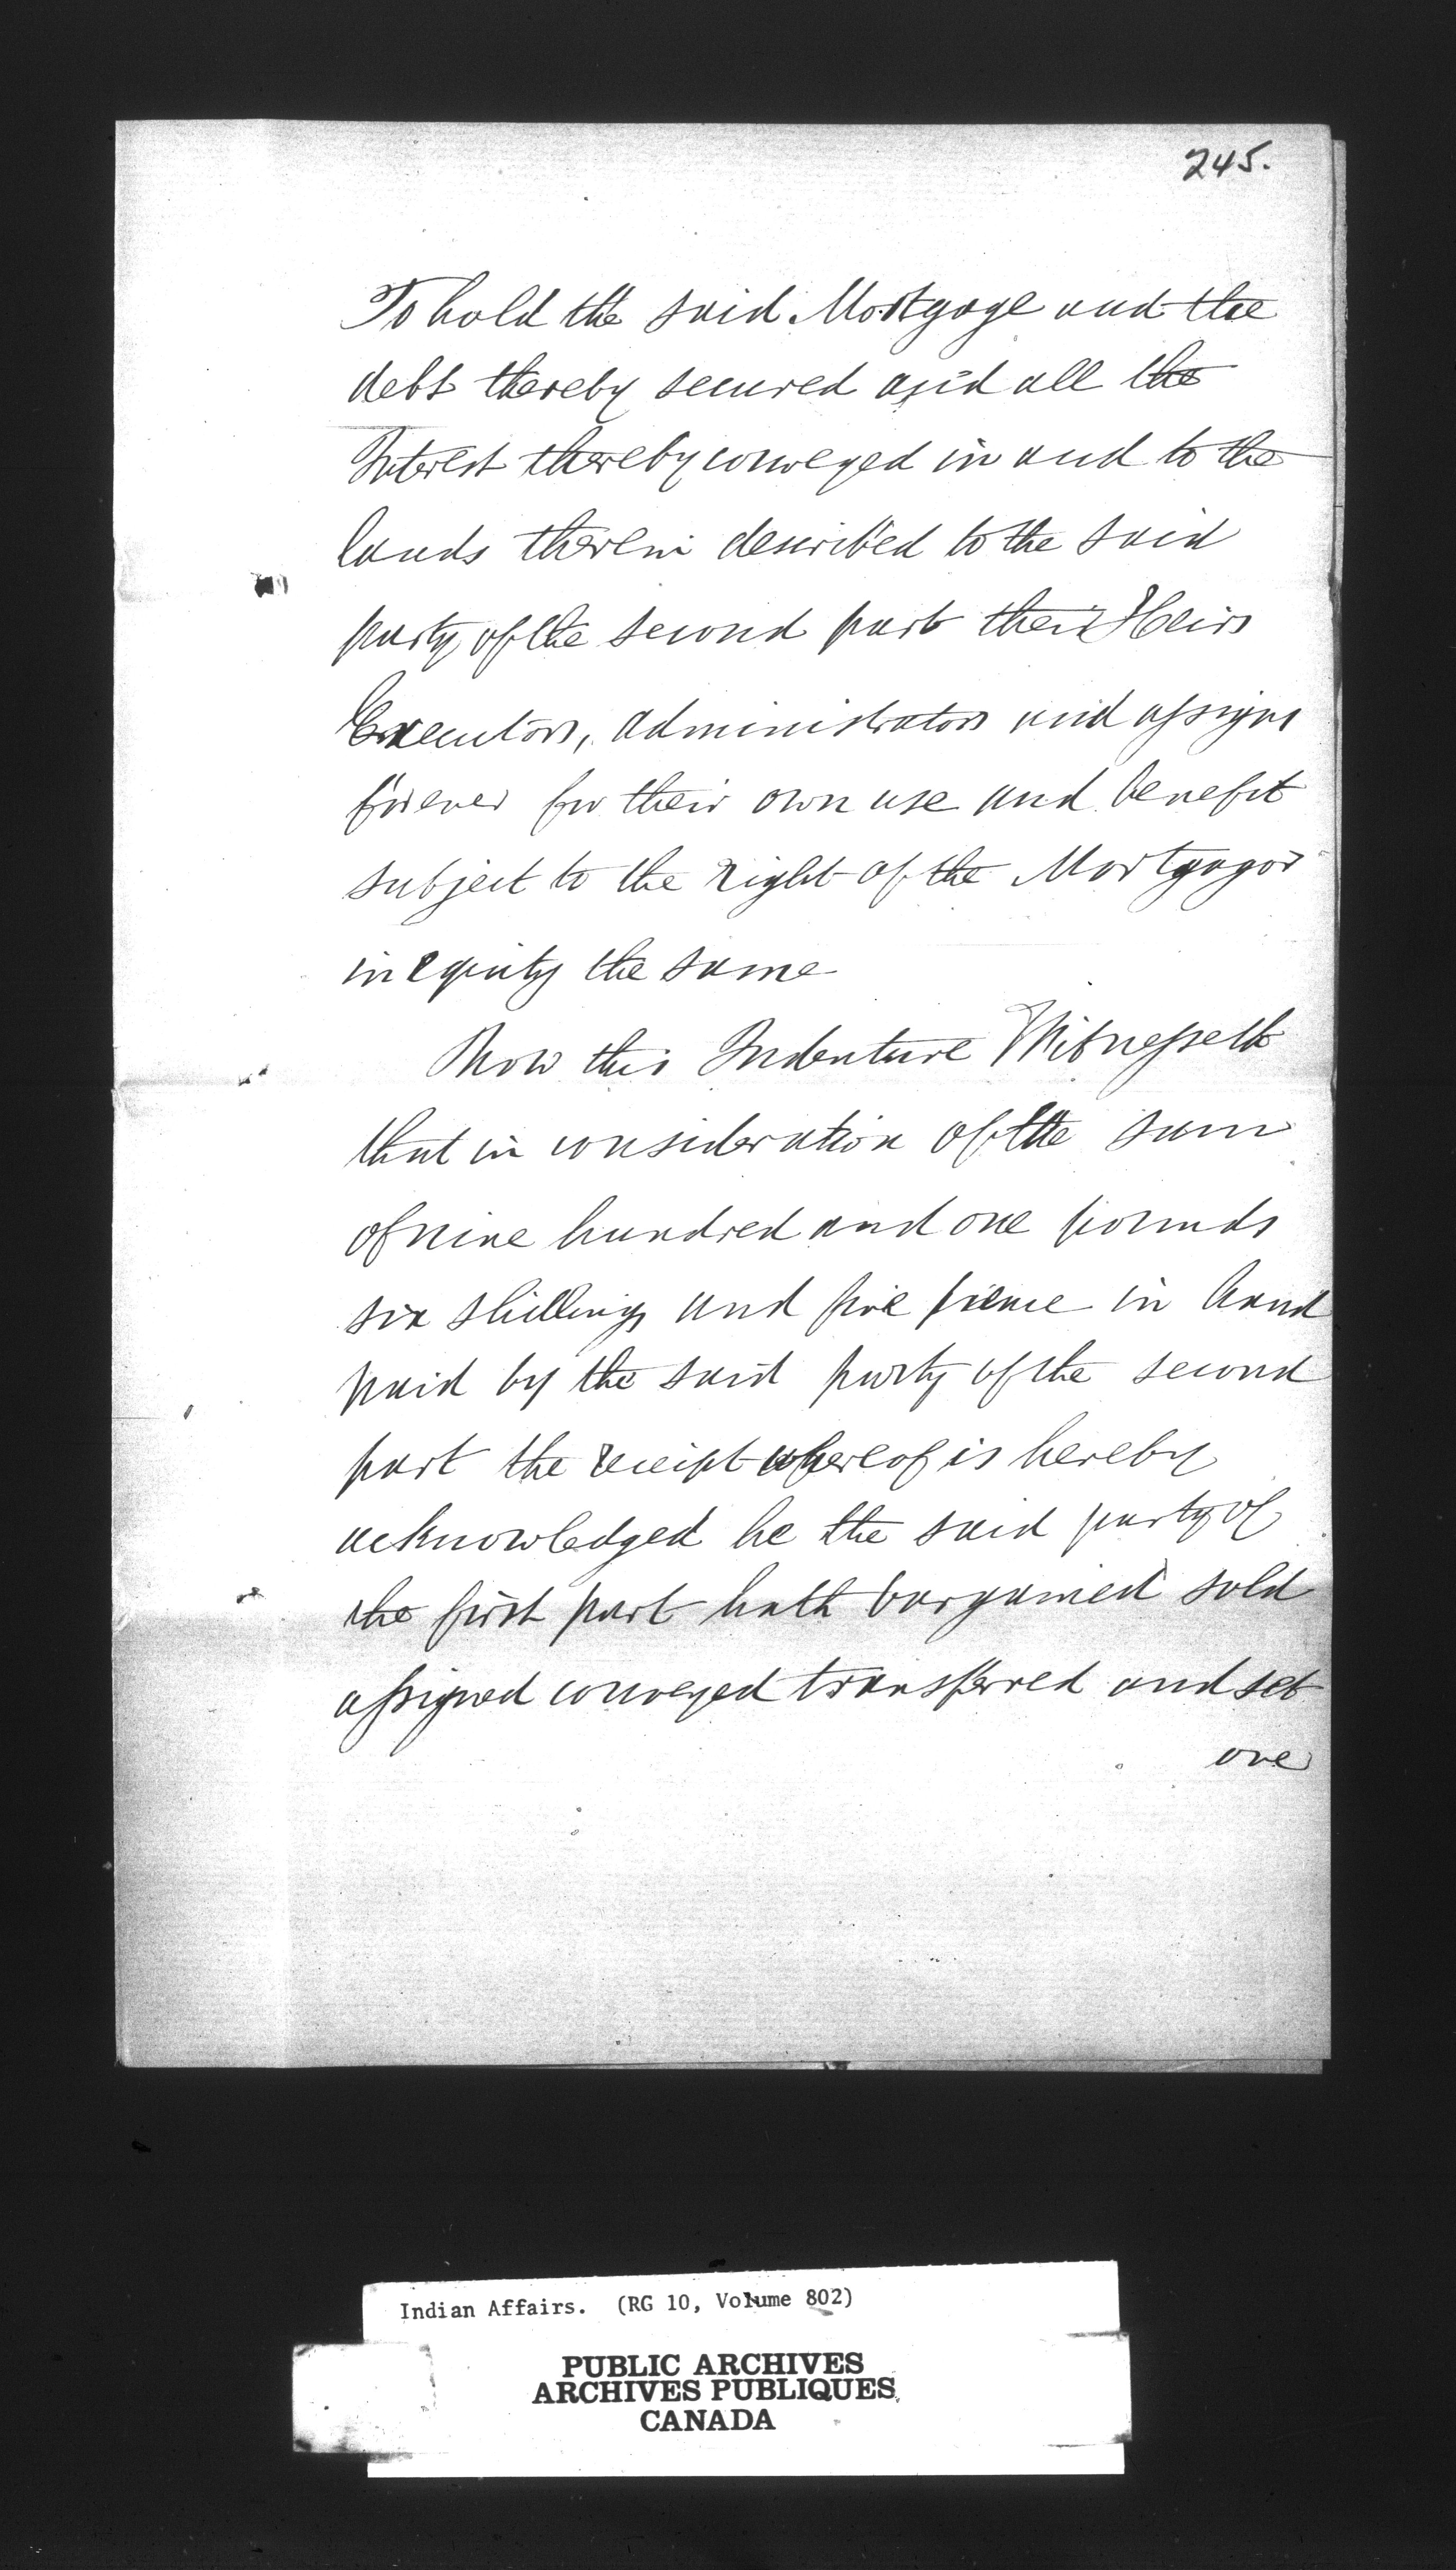 245.
To hold the said Mortgage and the
debt thereby secured and all the
Interest thereby conveyed in and to the
lands therein described to the said
party of the second part their Heirs
Executors, administrators and assigns
forever for their own use and benefit
subject to the right of the Mortgagor
in equity the same
Now this Indenture Witnesseth
that in consideration of the sum
of nine hundred and one pounds
six shillings and five pence in hand
paid by the said party of the second
part the receipt whereof is hereby
acknowledged he the said party of
the first part hath bargained sold
assigned conveyed transferred and set
ove
Indian Affairs. (RG 10, Volume 802)
PUBLIC ARCHIVES
ARCHIVES PUBLIQUES
CANADA